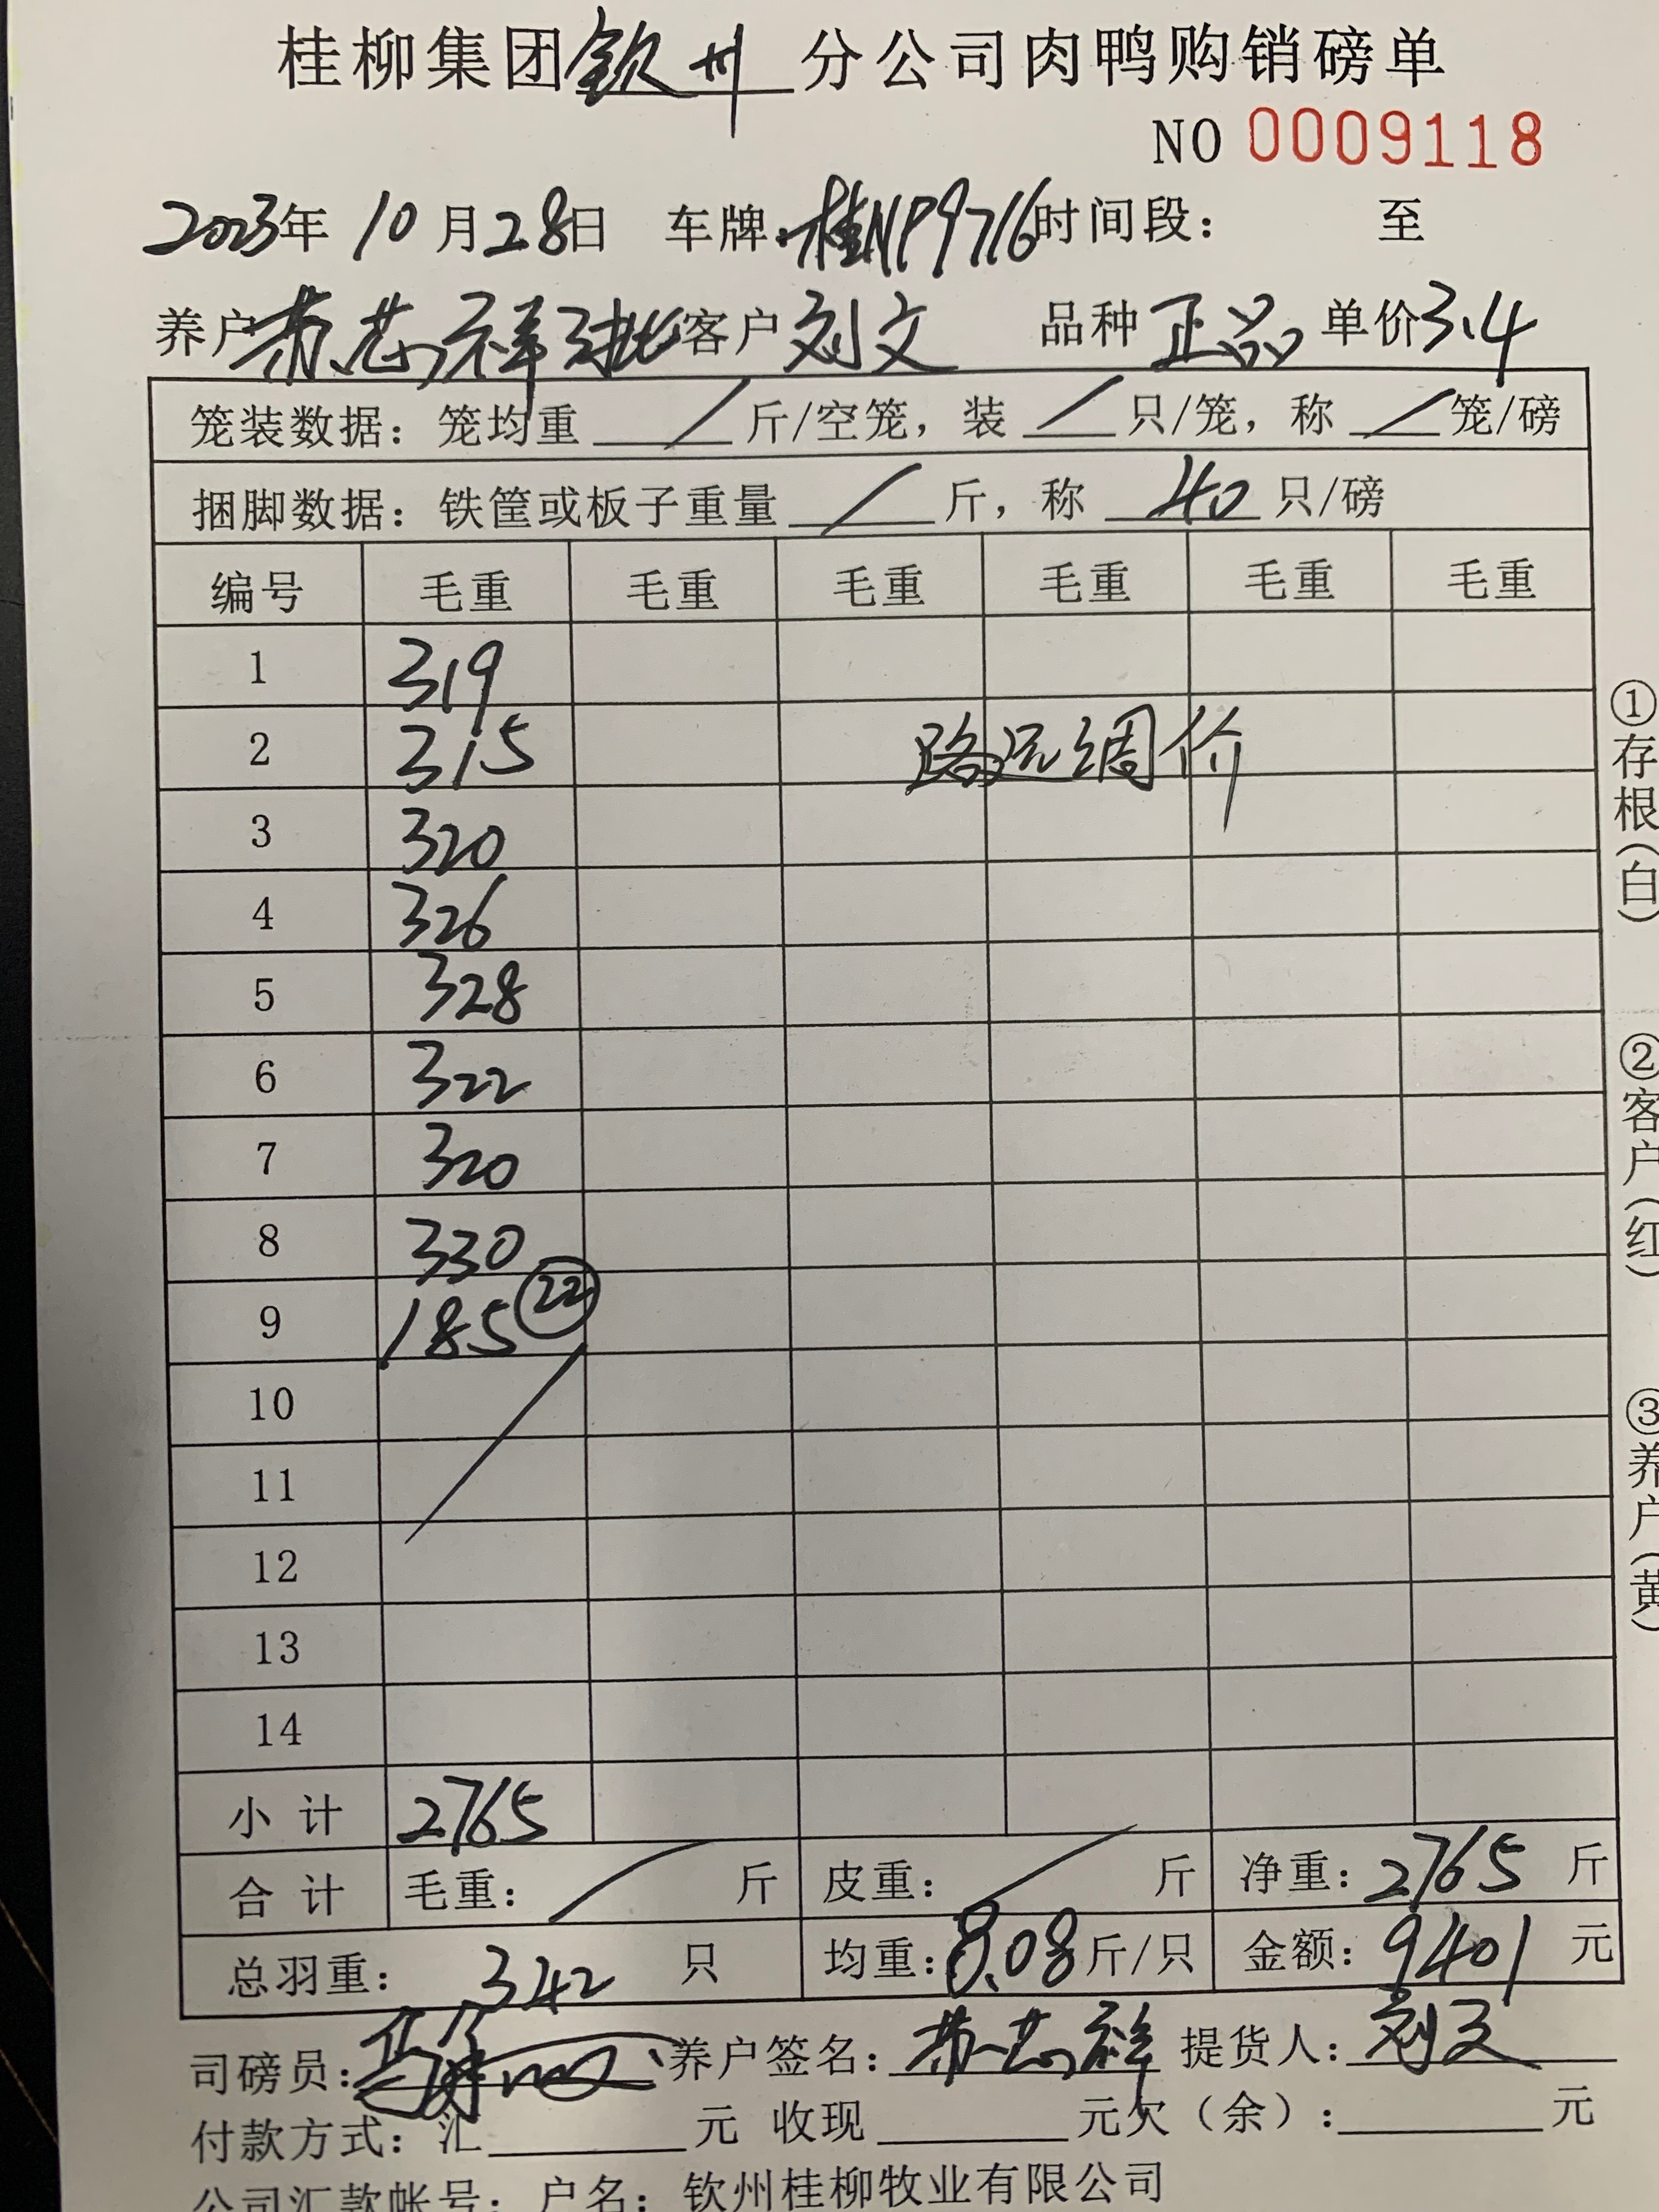 桂柳集团钦州分公司肉鸭购销磅单
NO 0009118
2023年 10月28日 车牌:桂NP9716 时间段: 至
养户 芯祥 客户 刘文 品种 正品 单价 3.4
笼装数据: 笼均重 / 斤/空笼, 装 / 只/笼, 称 / 笼/磅
捆脚数据: 铁筐或板子重量 / 斤, 称 40 只/磅
编号 毛重 毛重 毛重 毛重 毛重 毛重
1 319
2 315 路远调价
3 320
4 326
5 328
6 322
7 320
8 330
9 185 22
10
11
12
13
14
小计 2765
合计 毛重: / 斤 皮重: / 斤 净重: 2765 斤
总羽重: 342 只 均重: 8.08 斤/只 金额: 9401 元
司磅员: 养户签名: 芯祥 提货人: 刘文
付款方式: 汇 元 收现 元 欠(余): 元
公司汇款帐号: 户名: 钦州桂柳牧业有限公司
①存根(白)
②客户(红)
③养户(黄)